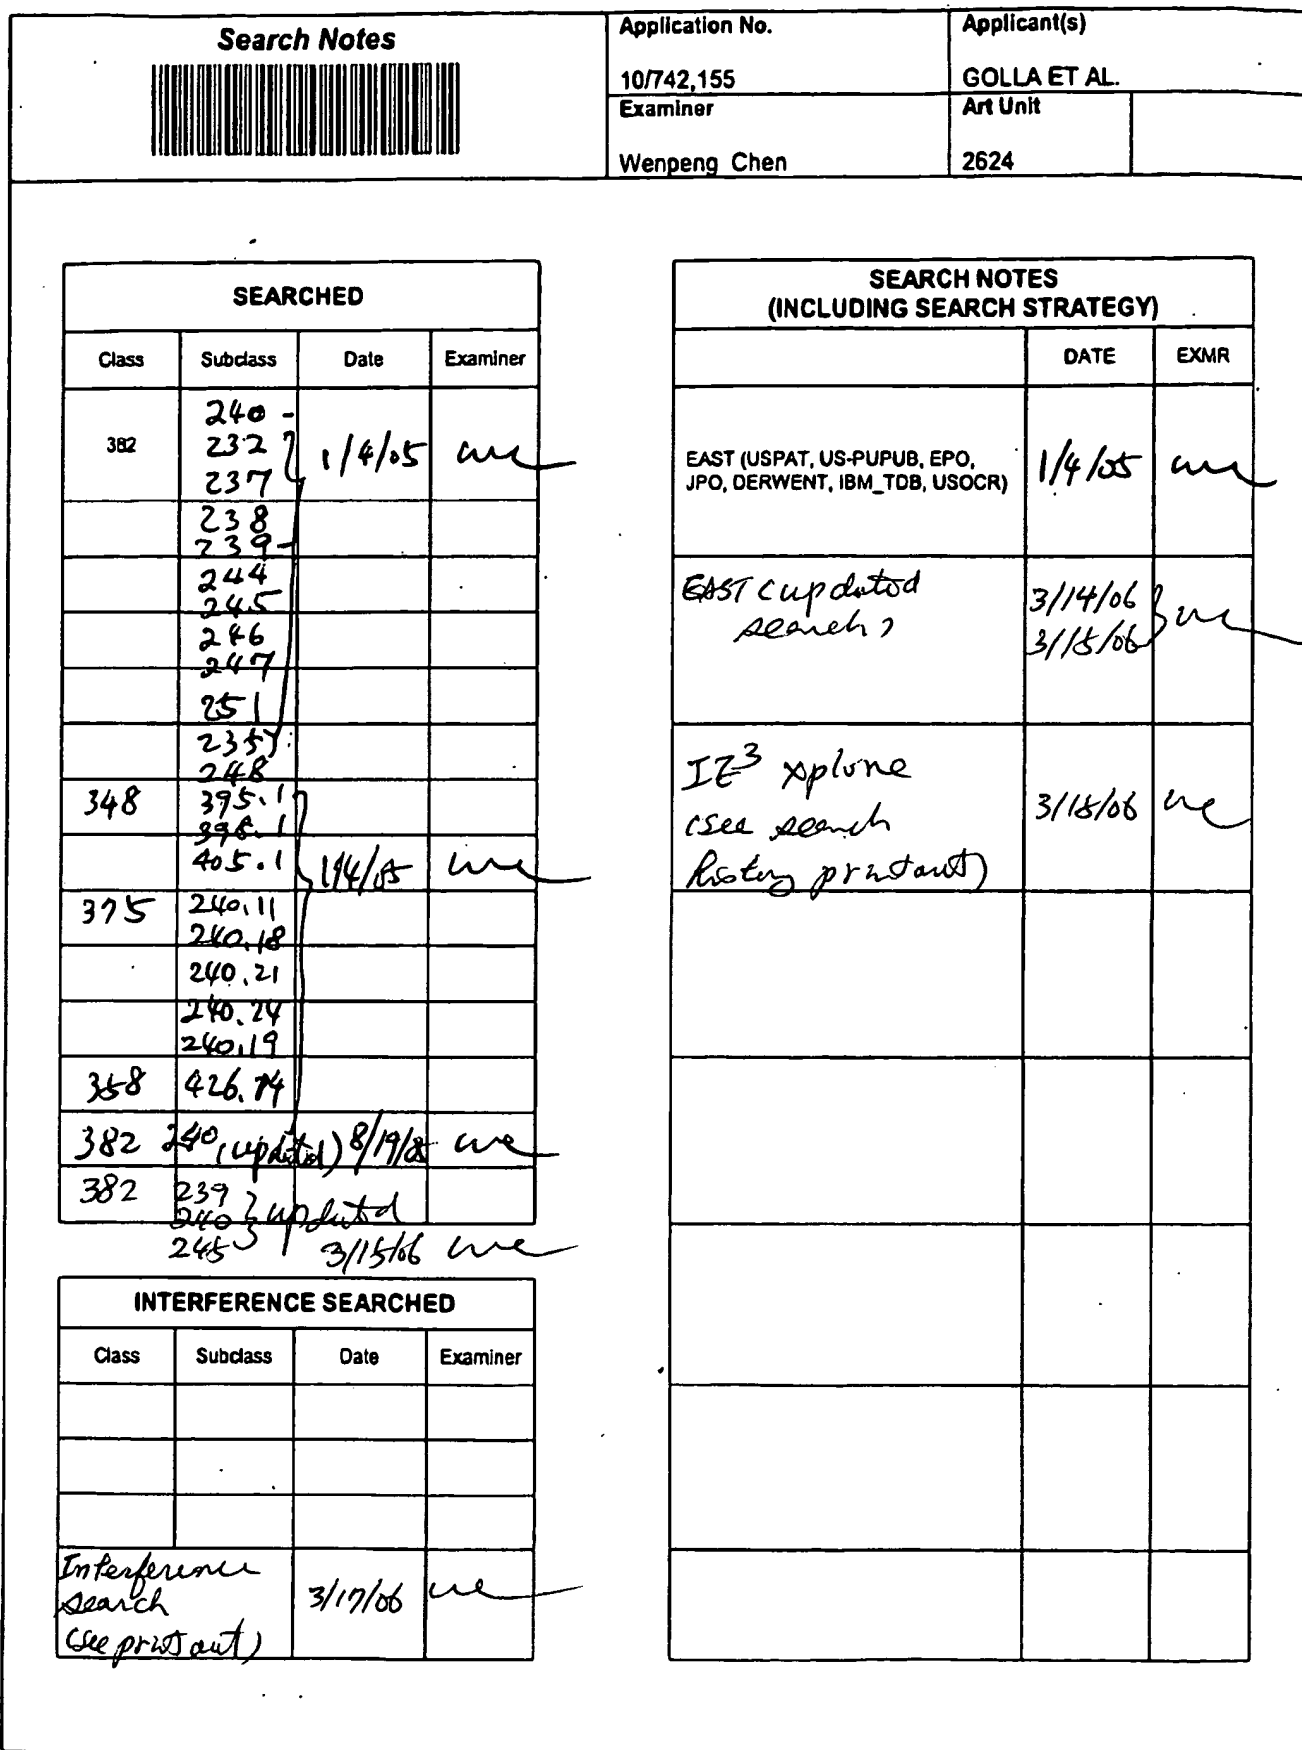 Search Notes
Application No.
10/742,155
Applicant(s)
GOLLA ET AL.
Examiner
Wenpeng Chen
Art Unit
2624
SEARCHED
Class Subclass Date Examiner
382 240 1/4/05
232
237
238
239
244
245
246
247
251
235
248
348 395.1
398.1
405.1 1/4/05
375 240.11
240.18
240.21
240.24
240.19
358 426.14
382 240 (updated) 8/19/05
382 239
240 updated
245 3/15/06
INTERFERENCE SEARCHED
Class Subclass Date Examiner
Interference
search 3/17/06
(see print out)
SEARCH NOTES
(INCLUDING SEARCH STRATEGY)
DATE EXMR
EAST (USPAT, US-PUPUB, EPO,
JPO, DERWENT, IBM_TDB, USOCR) 1/4/05
EAST (updated 3/14/06
search) 3/15/06
IE³ xplore
(see search 3/15/06
history printout)